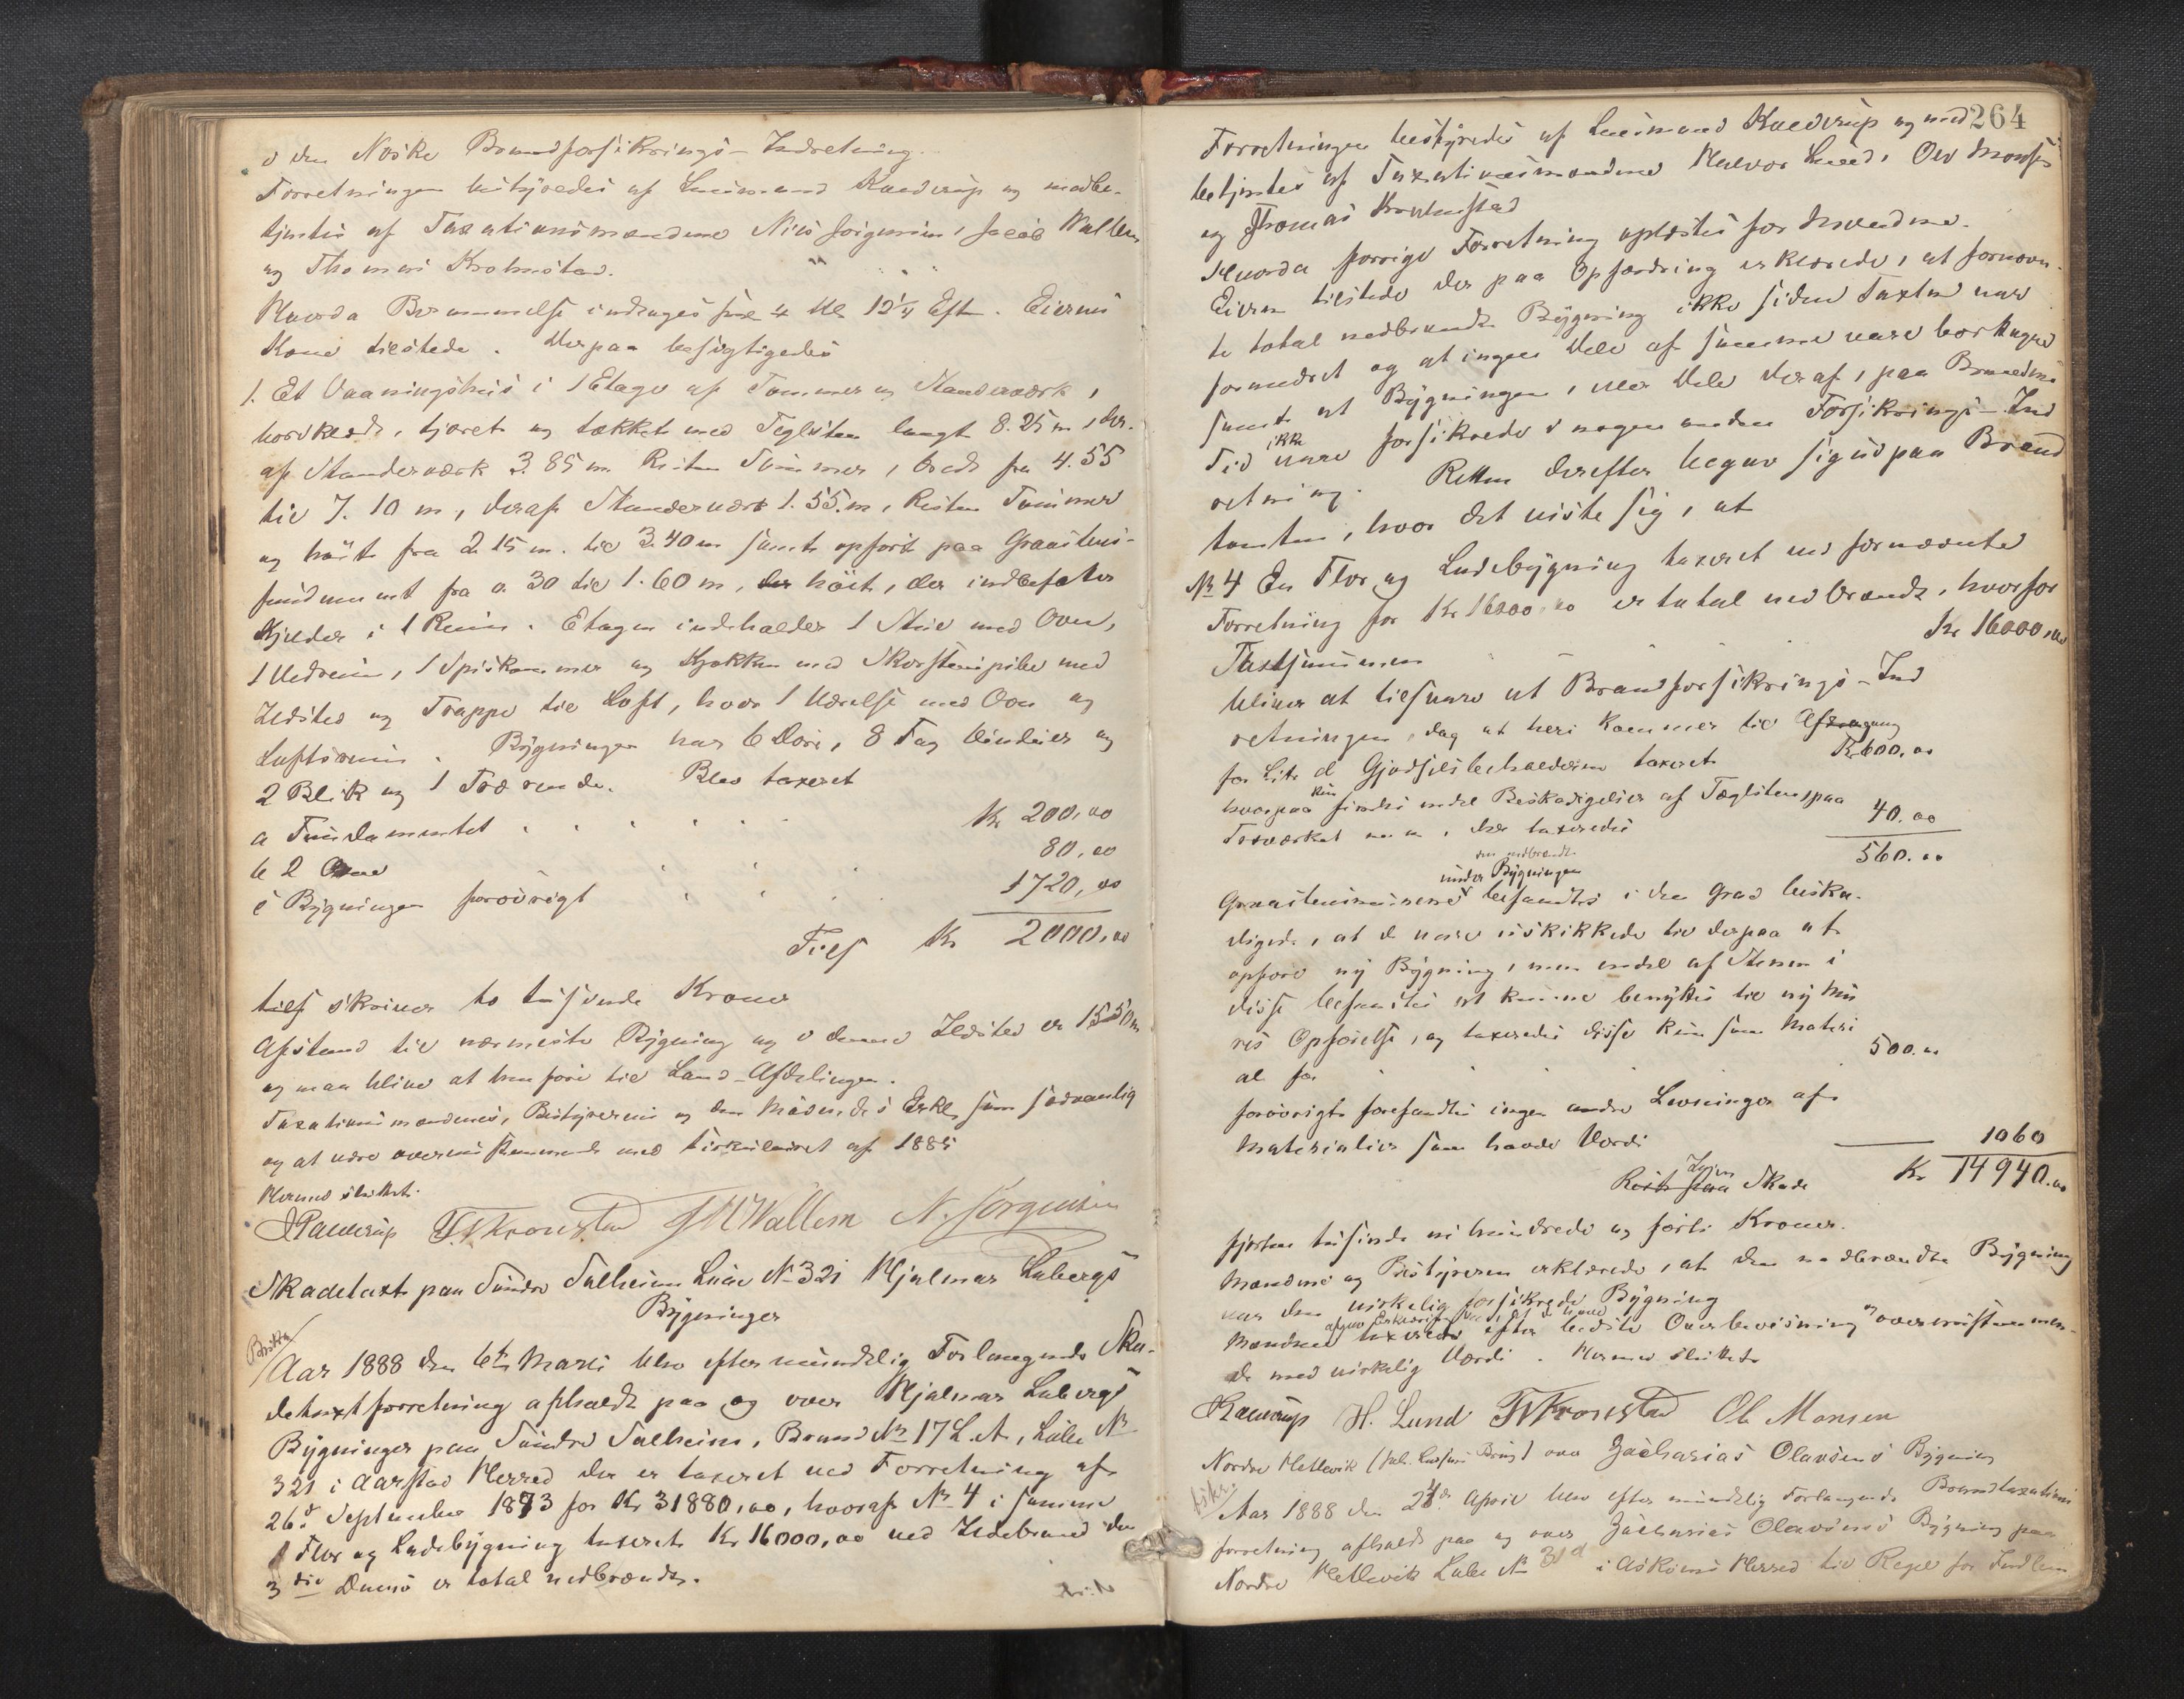 i den Norske Brandforsikrings-Indretning.
Forretningen bestyredes af Lensmand Kaldrup og medbe-
tjentes af Taxationsmændene Nils Jørgensen, Jacob Wallem
og Thomas Kronstad.
Havda Berammelse indtages fra 4 Kl 12 1/4 Eft. Eierens
Kone tilstede. Derpaa besigtigedes
1. Et Vaaningshus i 1 Etage af Tømmer og Standerværk,
bordklædt, tjæret og tækket med Teglsten langt 8.25 m, der-
af Standerværk 3.85 m Resten Tømmer, bredt fra 4.55
til 7.10 m, deraf Standerværk 1.55 m, Resten Tømmer
og høit fra 2.15 m. til 3.40 m samt opført paa Graastens-
fundament fra 0.30 til 1.60 m, der høit, der indbefatter
Kjelder i 1 Rum. Etagen indeholder 1 Stue med Ovn,
1 Vedrum, 1 Spiskammer og Kjøkken med Skorstenspibe med
Ildsted og Trappe til Loft, hvor 1 Værelse med Ovn og
Loftsrum. Bygningen har 6 Døre, 8 Fag Vinduer og
2 Blik og 1 Trærende. Blev taxeret
a Fundamentet Kr 200,00
b 2 Ovne 80,00
c Bygningen forøvrigt 1720,00
Tils Kr 2000,00
tils skriver to tusinde Kroner
Afstand til nærmeste Bygning og i denne Ildsted er 15.50 m
og maa blive at henføre til Land-Afdelingen.
Taxationsmændenes, Bestyrerens og den Mødendes Erkl. som sædvanlig
og at være overensstemmende med Cirkulæret af 1885
Hermed sluttet.
Kaldrup TKronstad JMWallem N. Jørgensen
Skadetaxt paa Søndre Solheim Løbe No 321 Hjalmar Løbergs
Bygninger
Beskr.
Aar 1888 den 6te Marts blev efter mundtlig Forlangende Ska-
detaxtforretning afholdt paa og over Hjalmar Løbergs
Bygninger paa Søndre Solheim, Brand No 17 L. A, Løbe No
321 i Aarstad Herred der er taxeret ved Forretning af
26de September 1873 for Kr 31880,00, hvoraf No 4 i samme
1 Flor og Ladebygning taxeret Kr 16000,00 ved Ildebrand den
3die Dennes er total nedbrændt.
264
Forretningen bestyredes af Lensmand Kaldrup og med-
betjentes af Taxationsmændene Halvor Lund, Ole Monsen
og Thomas Kronstad
Havda forrige Forretning oplæstes for Mændene.
Eieren tilstede der paa Opfordring erklærede, at fornævn-
te total nedbrændte Bygning ikke siden Taxten var
forandret og at ingen Dele af samme vare borttagne
samt at Bygningen, eller Dele deraf, paa Brandens
Tid ikke vare forsikrede i nogen anden Forsikrings-Ind
retning. Retten derefter begav sig ud paa Brand
tomten, hvor det viste sig, at
No 4 En Flor og Ladebygning taxeret ved fornævnte
Forretning for Kr 16000,00 er total nedbrændt, hvorfor
Taxtsummen Kr 16000,00
bliver at tilsvare ut Brandforsikrings-Ind
retningen, dog at heri kommer til Afdragning
for Litr d Gjødselsbeholderen taxeret Kr 600,00
hvorpaa kun findes endel Beskadigelser af Teglstenspaa
Træværket m m, der taxeredes 40.00
560.00
Graastensmurene under den nedbrændte Bygningen befandtes i den Grad beska-
digede, at de vare uskikkede til derpaa at
opføre ny Bygning, men endel af Stenen i
disse befandtes at kunne benyttes til ny Mu
rs Opførelse, og taxeredes disse kun som Materi
al for 500.00
forøvrigt forefandtes ingen andre Levninger af
Materialier som havde Værdi 1060
Rest for Igjen Skade Kr 14940.00
fjorten tusinde ni hundrede og førti Kroner.
Mændene og Bestyreren erklærede, at den nedbrændte Bygning
var den virkelig forsikrede Bygning
Mændene taxerede efter bedste Overbevisning og overensstemmen-
de med virkelig Værdi. Hermed sluttet
Kaldrup H. Lund TKronstad Ole Monsen
Nordre Hetlevik over Zacharias Olavsens Bygning
Beskr.
Aar 1888 den 28de April blev efter mundtlig Forlangende Brandtaxations
forretning afholdt paa og over Zacharias Olavsens Bygning paa
Nordre Hetlevik Løbe No 31d i Askøens Herred til Regel for Indlem